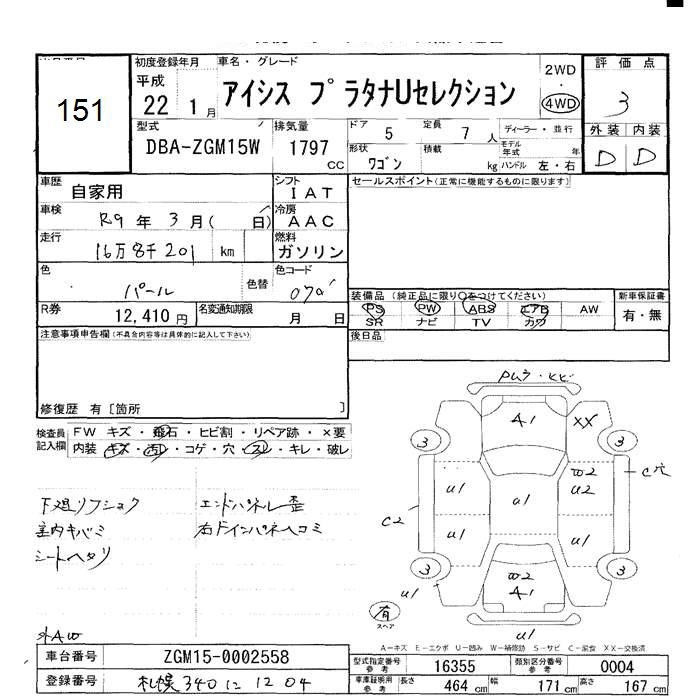 151
初度登録年月 車名・グレード
平成 22 1 月
アイシス プラタナUセレクション
2WD
・
4WD
評価点
3
外装 内装
D D
型式 DBA-ZGM15W
排気量 1797 CC
ドア 5 定員 7 人
形状 ワゴン 積載 kg
ディーラー・並行
モデル年式 年
ハンドル 左・右
車歴 自家用
シフト IAT
車検 R9年3月( 日)
冷房 AAC
走行 16万8千201 km
燃料 ガソリン
色 パール 色替
色コード 070
R券 12,410 円 名変通知期限 月 日
セールスポイント(正常に機能するものに限ります)
装備品 (純正品に限り○をつけてください) 新車保証書
PS PW ABS エアB AW 有・無
SR ナビ TV カワ
後日品
注意事項申告欄(不具合内容等は具体的に記入して下さい)
修復歴 有 [箇所 ]
検査員記入欄
FW キズ・飛石・ヒビ割・リペア跡・×要
内装 キズ・汚レ・コゲ・穴・スレ・キレ・破レ
下廻リフショク エンドパネル歪
室内キバミ 右ドインパネヘコミ
シートヘタリ
外AW
A1 XX
3 3
U1 W2 U2 C穴
U1
C2 U1 U1
3 3
W2 A1
U1
有
スペア
U1
A－キズ E－エクボ U－凹み W－補修跡 S－サビ C－腐食 XX－交換済
車台番号 ZGM15-0002558
登録番号 札幌 340 に 1204
型式指定番号 参考 16355 類別区分番号 参考 0004
車庫証明用 参考 長さ 464 cm 幅 171 cm 高さ 167 cm